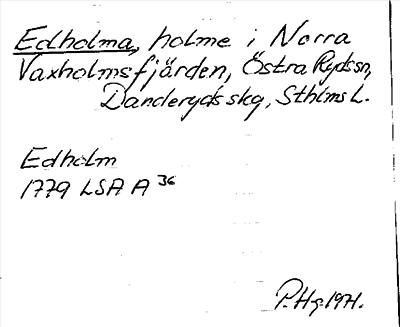 Edholma, holme i Norra
Vaxholmsfjärden, Östra Rydssn,
Danderyds skg, Sthlms L.
Edholm
1779 LSA A 36
P.Hg. 1971.